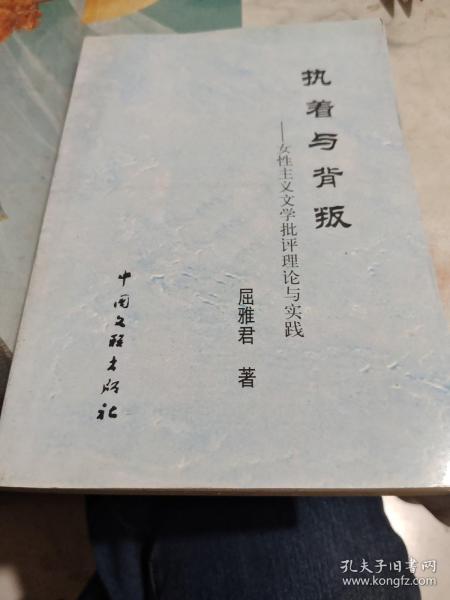 执着与背叛
——女性主义文学批评理论与实践
屈雅君 著
中国文联出版社
孔夫子旧书网
www.kongfz.com